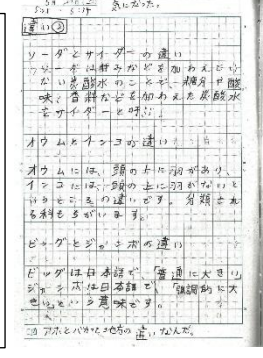 気になった。
違い②
ソーダとサイダーの違い
ソーダは甘みなどを加えてい
ない炭酸水のことで、糖分や酸
味、香料などを加えた炭酸水
をサイダーと呼ぶ。
オウムとインコの違い
オウムには、頭の上に羽があり、
インコには、頭の上に羽がないと
いうところの違いです。分類され
る科もちがいます。
ビッグとジャンボの違い
ビッグは日本語で、「普通に大きい」
ジャンボは日本語で、「強調的に大
きい」という意味です。
アホとバカって地方の違いなんだ。